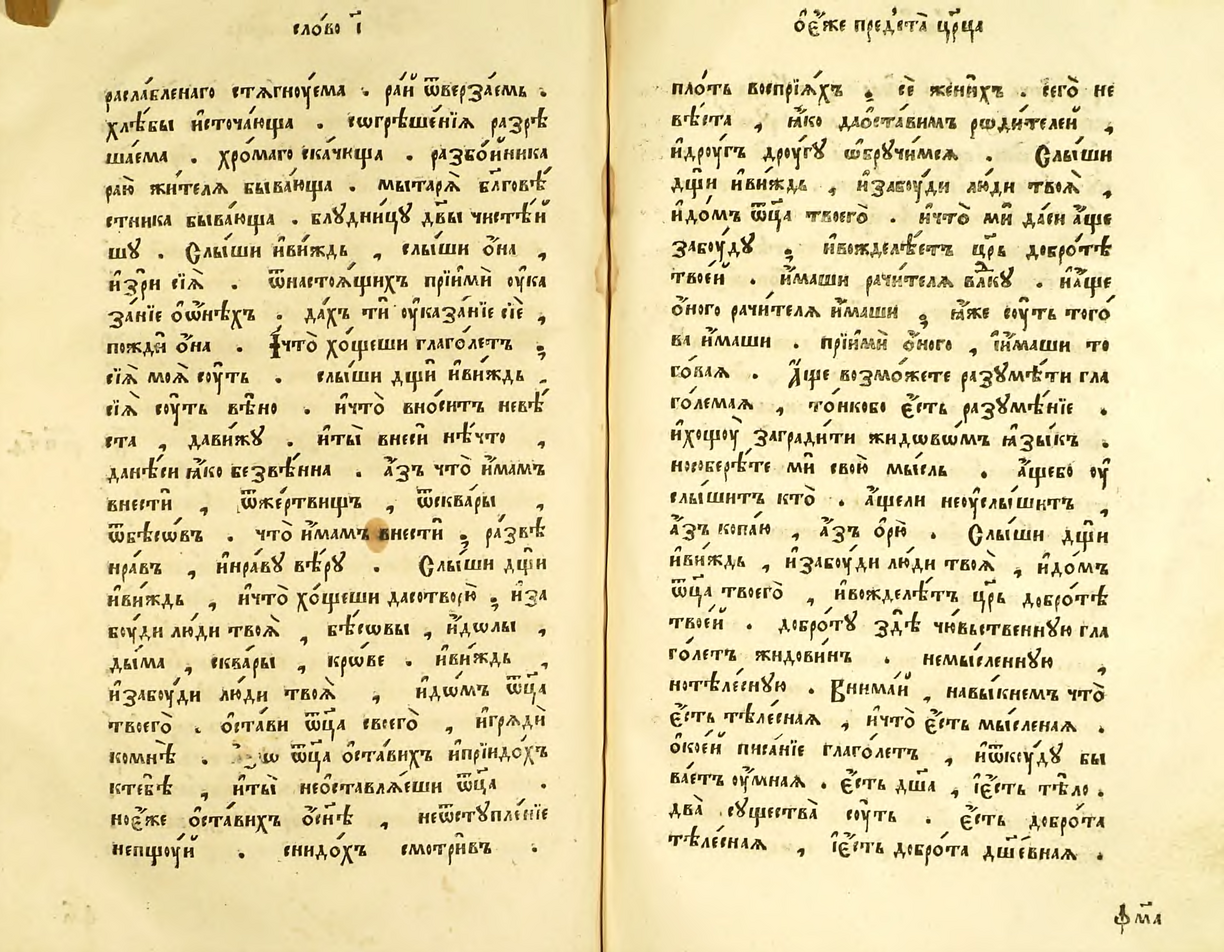 сло́во і҃
расла́бленаго стѧгноу́ема . ра́й ѿверза́емь .
хлѣ́бы и҆сточа́юща . сѡгрѣше́нїѧ разрѣ
ша́ема . хро́маго ска́чюща . разбо́иника
раю̀ жи́телѧ быва́юща . мытарѧ̀ бл҃говѣ́
стника быва́юща . блу́дницꙋ дв҃ы чистѣ́й
шꙋ . Слы́ши и҆ви́ждь , слы́ши ѻ҆́на ,
и҆́зри сїѧ̀ . ѿнастоѧ́щихъ прїимѝ оу҆ка
за́нїе ѻ҆ѡ҆́нѣхъ . да́хъ тѝ оу҆каза́нїе сїѐ ,
пождѝ ѻ҆́на . И҆что̀ хо́щеши глаго́летъ ;
сїѧ̀ моѧ̀ сѹ́ть . слы́ши дщ҃и и҆ви́ждь ,
сїѧ̀ соу́ть вѣ́но . и҆что̀ вно́ситъ невѣ́
ста , дави́жꙋ . и҆ты̀ внесѝ нѣ́что ,
данѣ́си ꙗ҆́ко безвѣ́нна . а҆́зъ что̀ и҆́мамъ
внестѝ , ѿже́ртвищъ , ѿсква́ры ,
ѿбѣ́сѡвъ . что̀ и҆́мамъ внестѝ ; ра́звѣ
нра́въ , и҆нра́вꙋ вѣ́рꙋ . Слы́ши дщ҃и
и҆ви́ждь , и҆что̀ хо́щеши дасотворю̀ ; и҆за
боу́ди лю́ди твоѧ̀ , бѣ́сѡвы , и҆́дѡлы ,
ды́ма , сква́ры , крѡ́ве . и҆ви́ждь ,
и҆забоу́ди лю́ди твоѧ̀ , и҆до́мъ ѿц҃а
твоего̀ . ѻ҆ста́ви ѿц҃а своего̀ , и҆грѧдѝ
комнѣ̀ . ѿц҃а ѻ҆ста́вихъ и҆прїидо́хъ
ктебѣ̀ , и҆ты̀ неѻ҆ставлѧ́еши ѿц҃а .
ноє҆́же ѻ҆ста́вихъ ѻ҆сн҃ѣ , неѿстꙋпле́нїе
непщоу́й . снидо́хъ смотри́въ .
ѻ҆є҆́же предста̀ цр҃ца
пло́ть воспрїѧ́хъ . сѐ жени́хъ . сего̀ не
вѣ́ста , ꙗ҆́ко даѻ҆ста́вимъ рѡди́телей ,
и҆дроу́гъ дроу́гꙋ ѡ҆брꙋчи́мсѧ . Слы́ши
дщ҃и и҆ви́ждь , и҆забоу́ди лю́ди твоѧ̀ ,
и҆до́мъ ѿц҃а твоего̀ . и҆что̀ мѝ да́си а҆́ще
забоу́дꙋ ; и҆вожделѣ́етъ цр҃ь добро́тѣ
твое́й . и҆́маши рачи́телѧ вл҃кꙋ . и҆а҆́ще
ѻ҆́ного рачи́телѧ и҆́маши ; ꙗ҆́же соу́ть того́
ва и҆́маши . прїимѝ ѻ҆́ного , і҆и҆́маши то
го́ваѧ . А҆́ще возмо́жете разꙋмѣ́ти гла
го́лемаѧ , то́нкобо є҆́сть разꙋмѣ́нїе .
и҆хощоу̀ загради́ти жидѡвѡ́мъ ꙗ҆зы́къ .
нособере́те мѝ свою̀ мы́сль . а҆́щебо оу҆
слы́шитъ кто̀ . а҆́щели неоу҆слы́шитъ ,
а҆́зъ копа́ю , а҆́зъ ѻ҆рю̀ . Слы́ши дщ҃и
и҆ви́ждь , и҆забоу́ди лю́ди твоѧ̀ , и҆до́мъ
ѿц҃а твоего̀ , и҆вожделѣ́етъ цр҃ь добро́тѣ
твое́й . добро́тꙋ здѣ̀ чю́вьственнꙋю гла
го́летъ жидови́нъ . немы́сленнꙋю ,
нотѣле́снꙋю . Внима́й , навы́кнемъ что̀
є҆́сть тѣле́снаѧ , и҆что̀ є҆́сть мы́сленаѧ .
ѻ҆кое́й писа́нїе глаго́летъ , и҆ѿкоу́дꙋ бы
ва́етъ оу҆́мнаѧ . є҆́сть дш҃а , і҆є҆́сть тѣ́ло .
два̀ сꙋщества̀ соу́ть . є҆́сть добро́та
тѣле́снаѧ , і҆є҆́сть добро́та дш҃е́внаѧ .
ф҂ м҃а